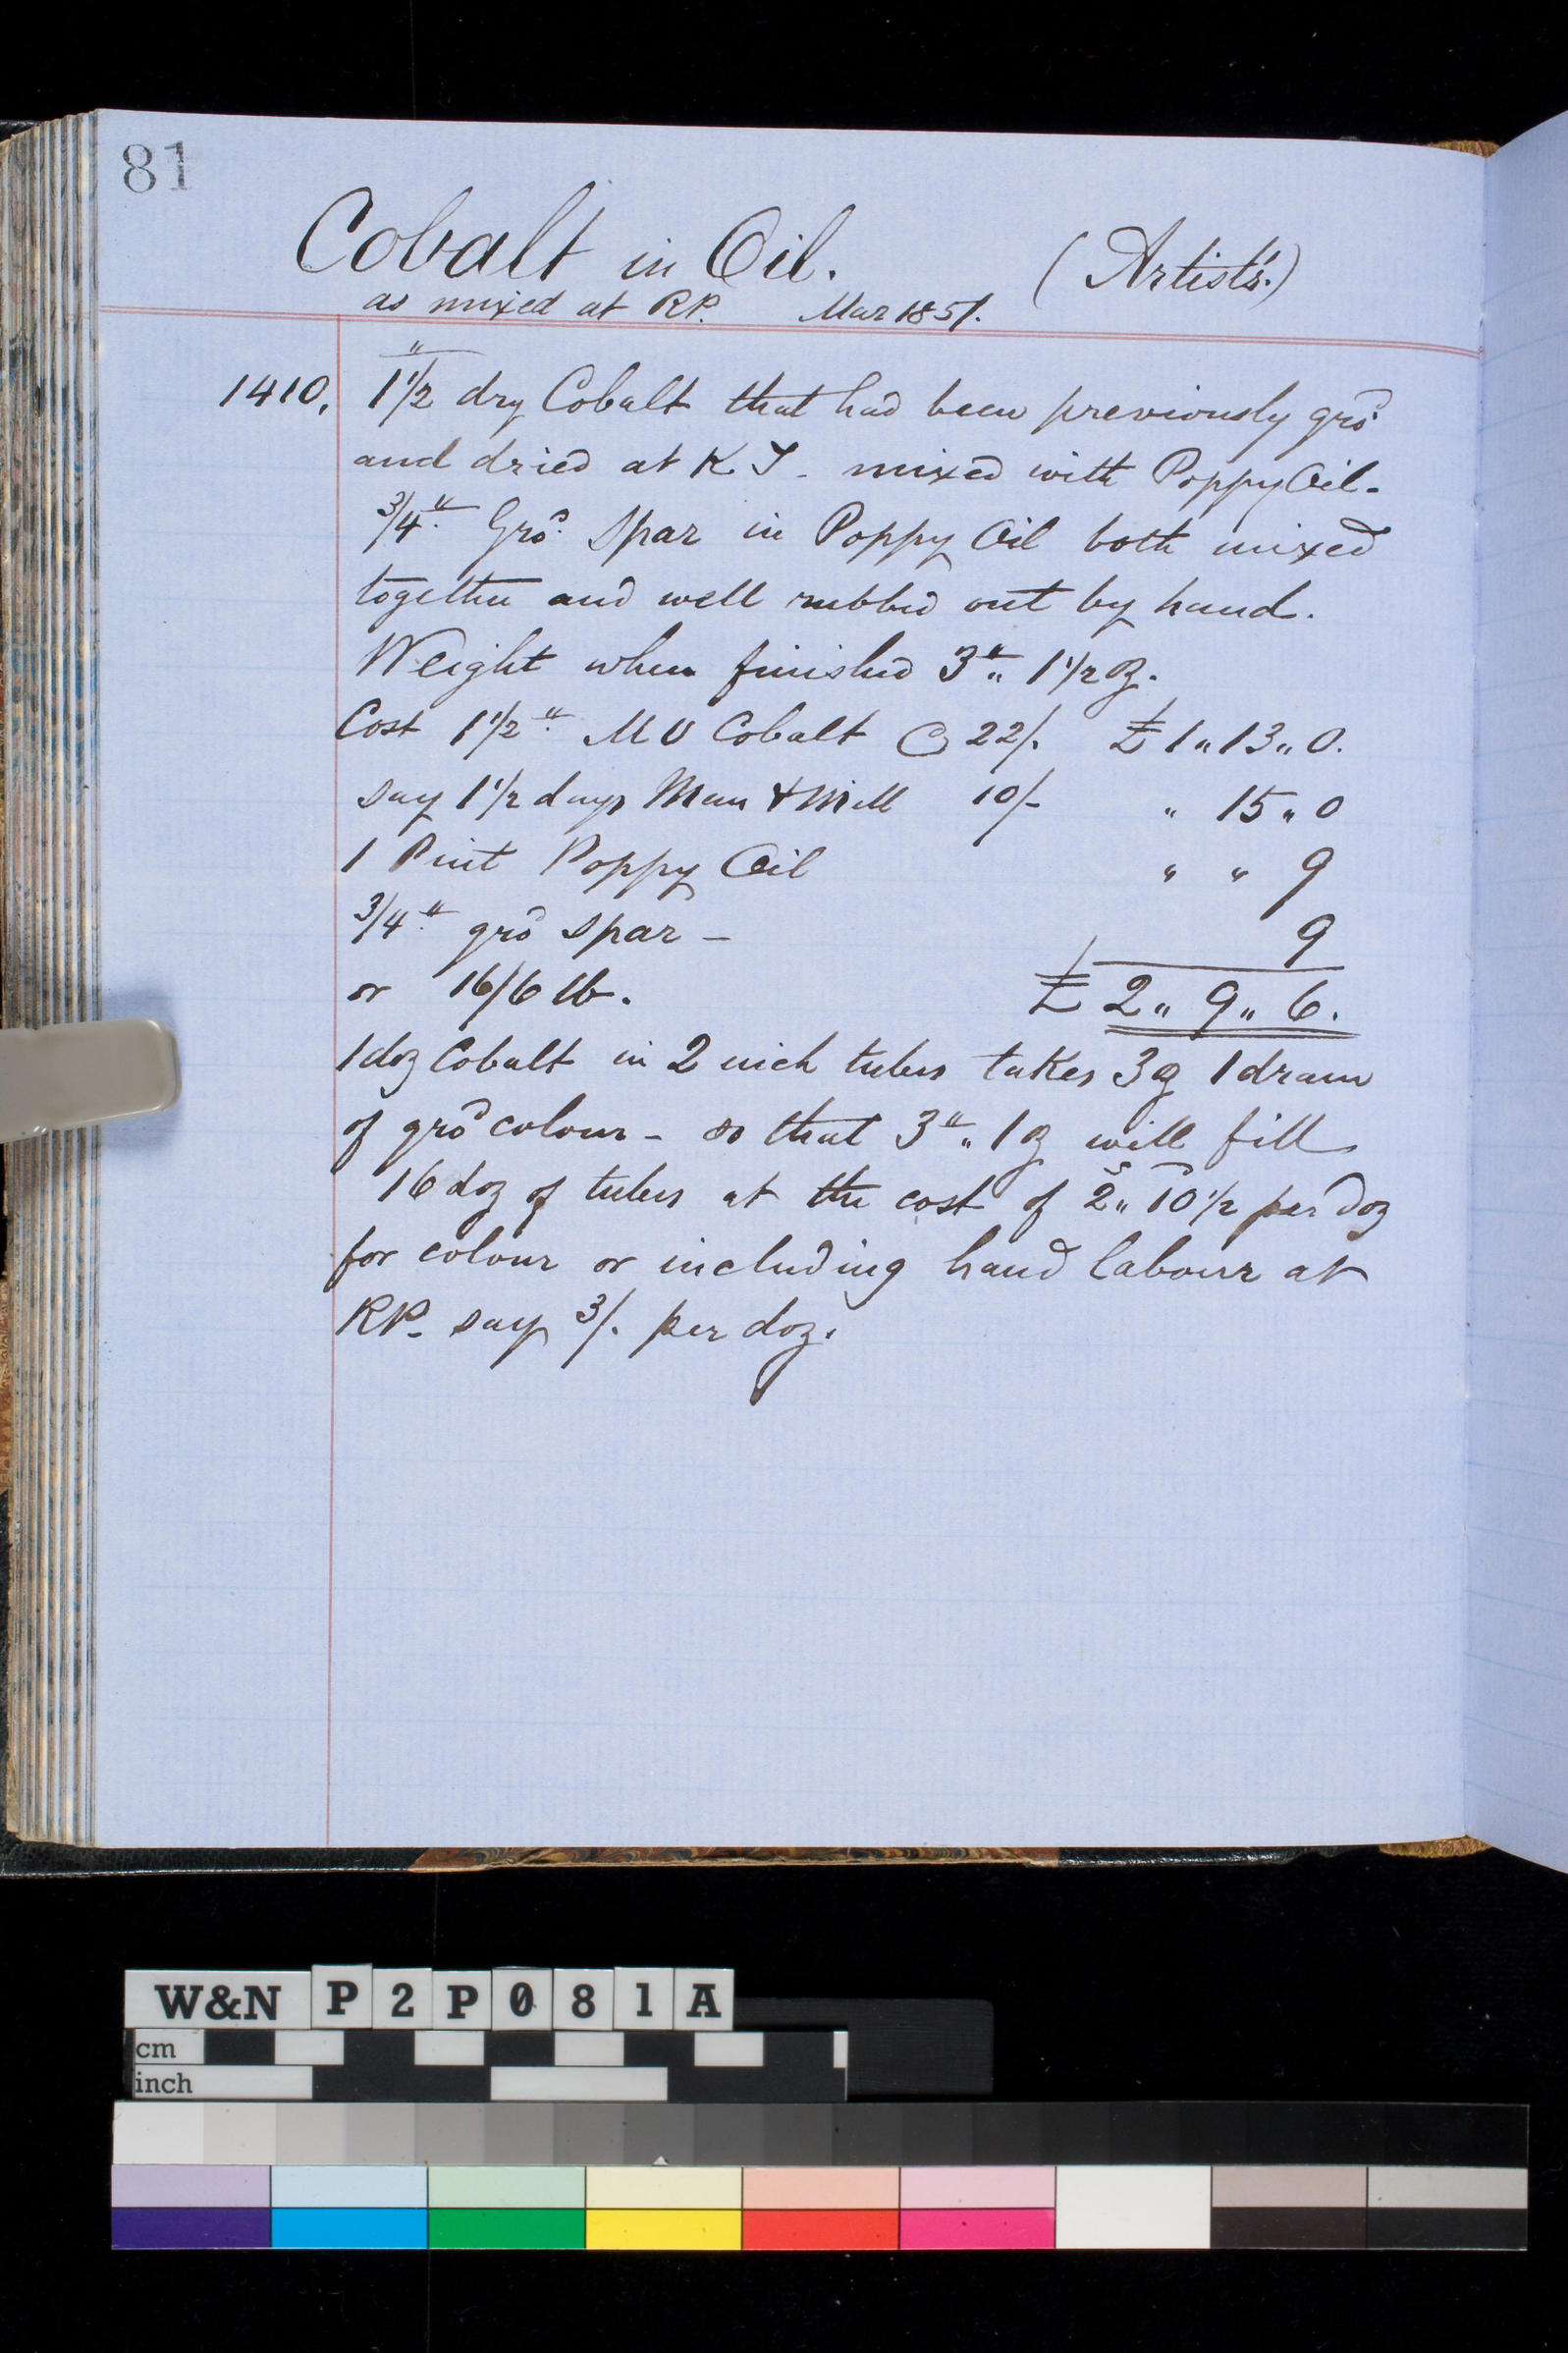 81
Cobalt in Oil. (Artists'.)
as mixed at RP. Mar 1851.
1410. 1 1/2 " dry Cobalt that had been previously grd.
and dried at K T - mixed with Poppy Oil -
3/4 " Grd. Spar in Poppy Oil both mixed
together and well rubbed out by hand.
Weight when finished 3 " " 1 1/2 oz.
Cost 1 1/2 " M U Cobalt @ 22/. £ 1 " 13 " 0.
say 1 1/2 days Man & Mill 10/- " 15 " 0
1 Pint Poppy Oil " " 9
3/4 " grd spar - 9
or 16/6 lb. £ 2 " 9 " 6.
1 doz Cobalt in 2 inch tubes takes 3 oz 1 dram
of grd colour - so that 3 " " 1 oz will fill
16 doz of tubes at the cost of 2s " 10 1/2 per doz
for colour or including hand labour at
RP. say 3/. per doz.
W&N P2P081A
cm
inch